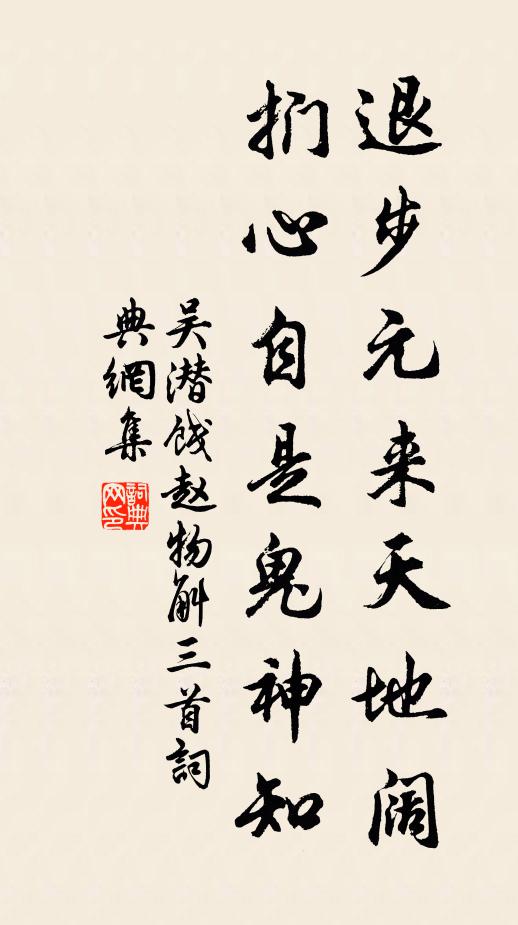 退步元来天地阔
扪心自是鬼神知
吴潜饯赵物斛三首詞
典網集
詞典
网印